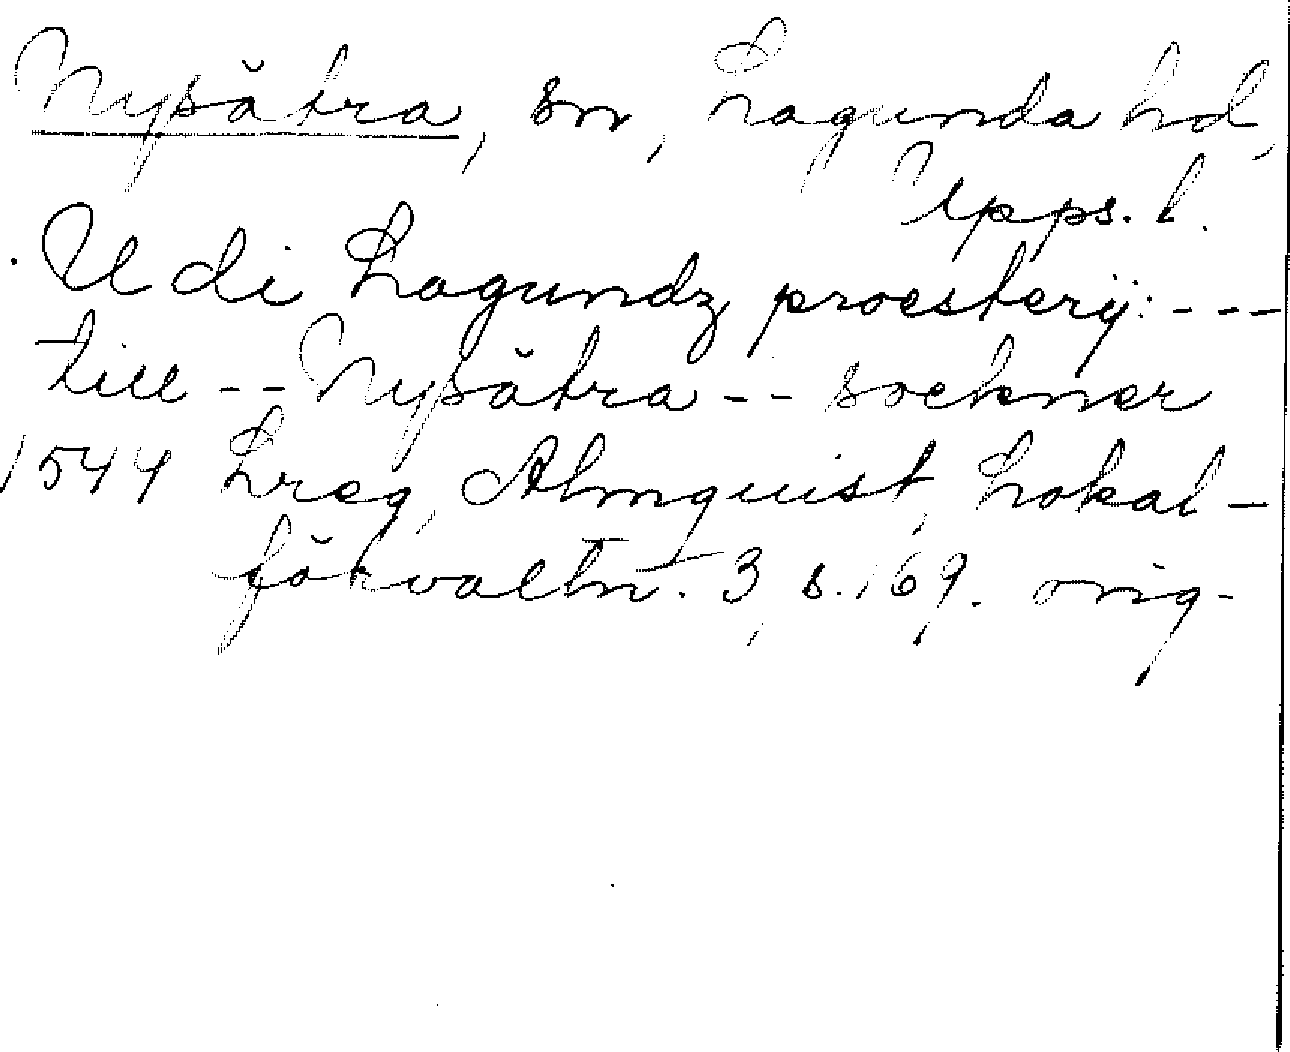 Nysätra, sn, Lagunda hd,
Upps. l.
Udi Lagundz proesterij: ---
till -- Nysätra -- soekner
1544 Lreg, Almquist, Lokal-
förvaltn. 3, s. 169. orig.